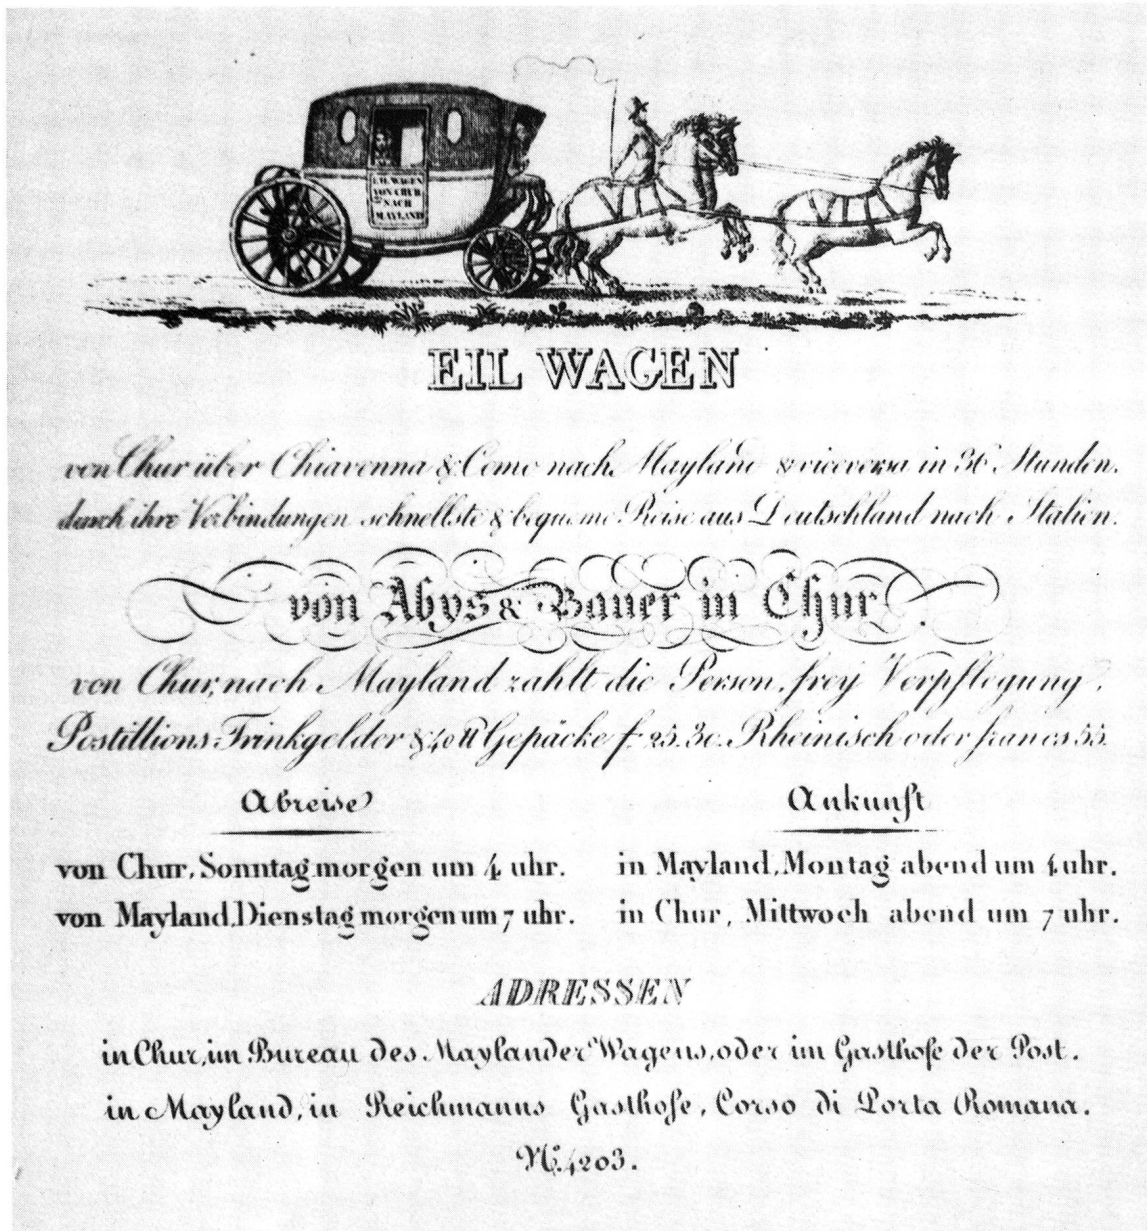 EIL WAGEN
VON CHUR
NACH
MAYLAND
EIL WAGEN
von Chur über Chiavenna & Como nach Mayland & viceversa in 36 Stunden.
durch ihre Verbindungen schnellste & bequeme Reise aus Deutschland nach Italien.
von Abys & Bauer in Chur
von Chur, nach Mayland zahlt die Person, frey Verpflegung,
Postillions-Trinkgelder & 40 ℔ Gepäcke f. 25.30. Rheinisch oder francs 55.
Abreise
Ankunft
von Chur, Sonntag morgen um 4 uhr.
in Mayland, Montag abend um 4 uhr.
von Mayland, Dienstag morgen um 7 uhr.
in Chur, Mittwoch abend um 7 uhr.
ADRESSEN
in Chur, im Bureau des Maylander Wagens, oder im Gasthofe der Post.
in Mayland, in Reichmanns Gasthofe, Corso di Porta Romana.
N.º 4203.